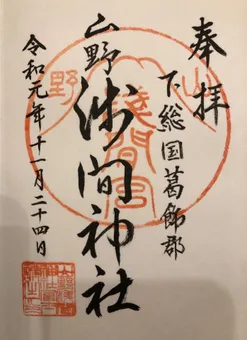 奉拝
下総国葛飾郡
山野
浅間神社
令和元年十一月二十四日
山
野
浅間宮